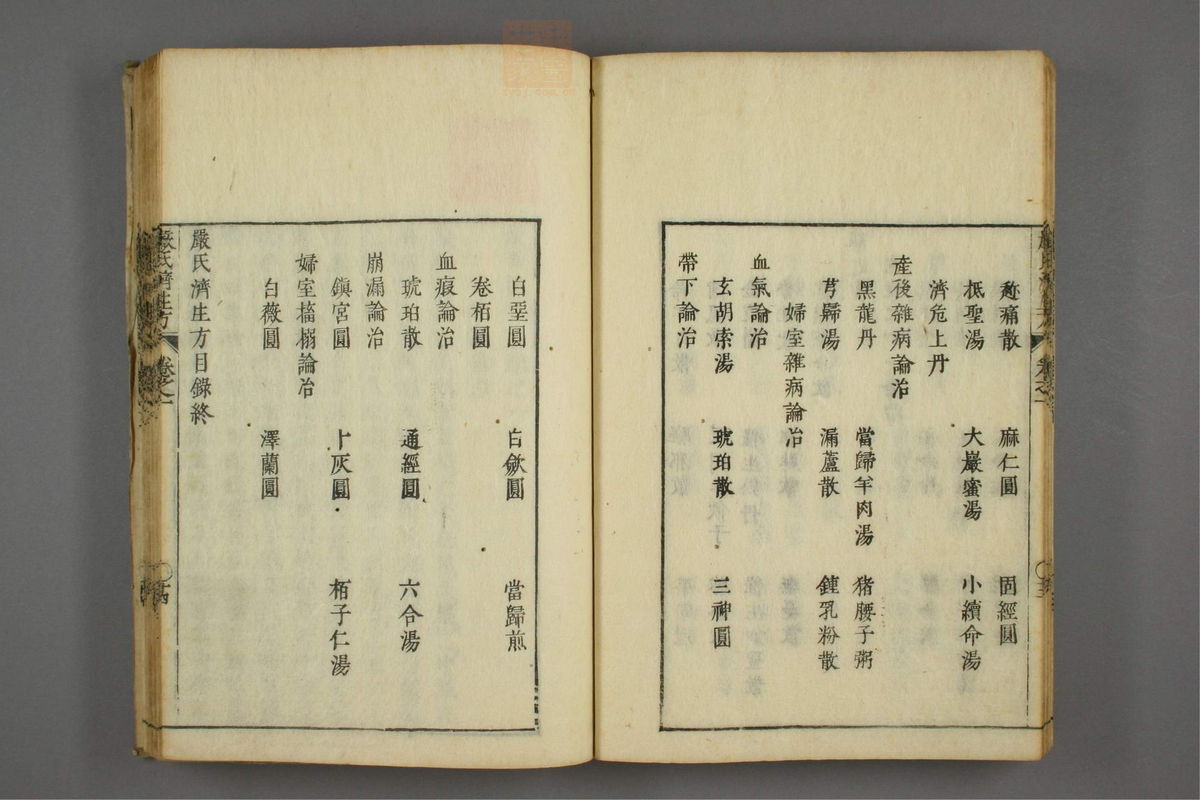 愈痛散 麻仁圓 固經圓
抵聖湯 大嚴蜜湯 小續命湯
濟危上丹
產後雜病論治
黑龍丹 當歸羊肉湯 猪腰子粥
芎歸湯 漏蘆散 鍾乳粉散
婦室雜病論治
血氣論治
玄胡索湯 琥珀散 三神圓
帶下論治
白堊圓 白斂圓 當歸煎
卷栢圓
血瘕論治
琥珀散 通經圓 六合湯
崩漏論治
鎮宮圓 十灰圓 栢子仁湯
婦室論治
白薇圓 澤蘭圓
嚴氏濟生方目錄終
嚴氏濟生方 卷之一 十四